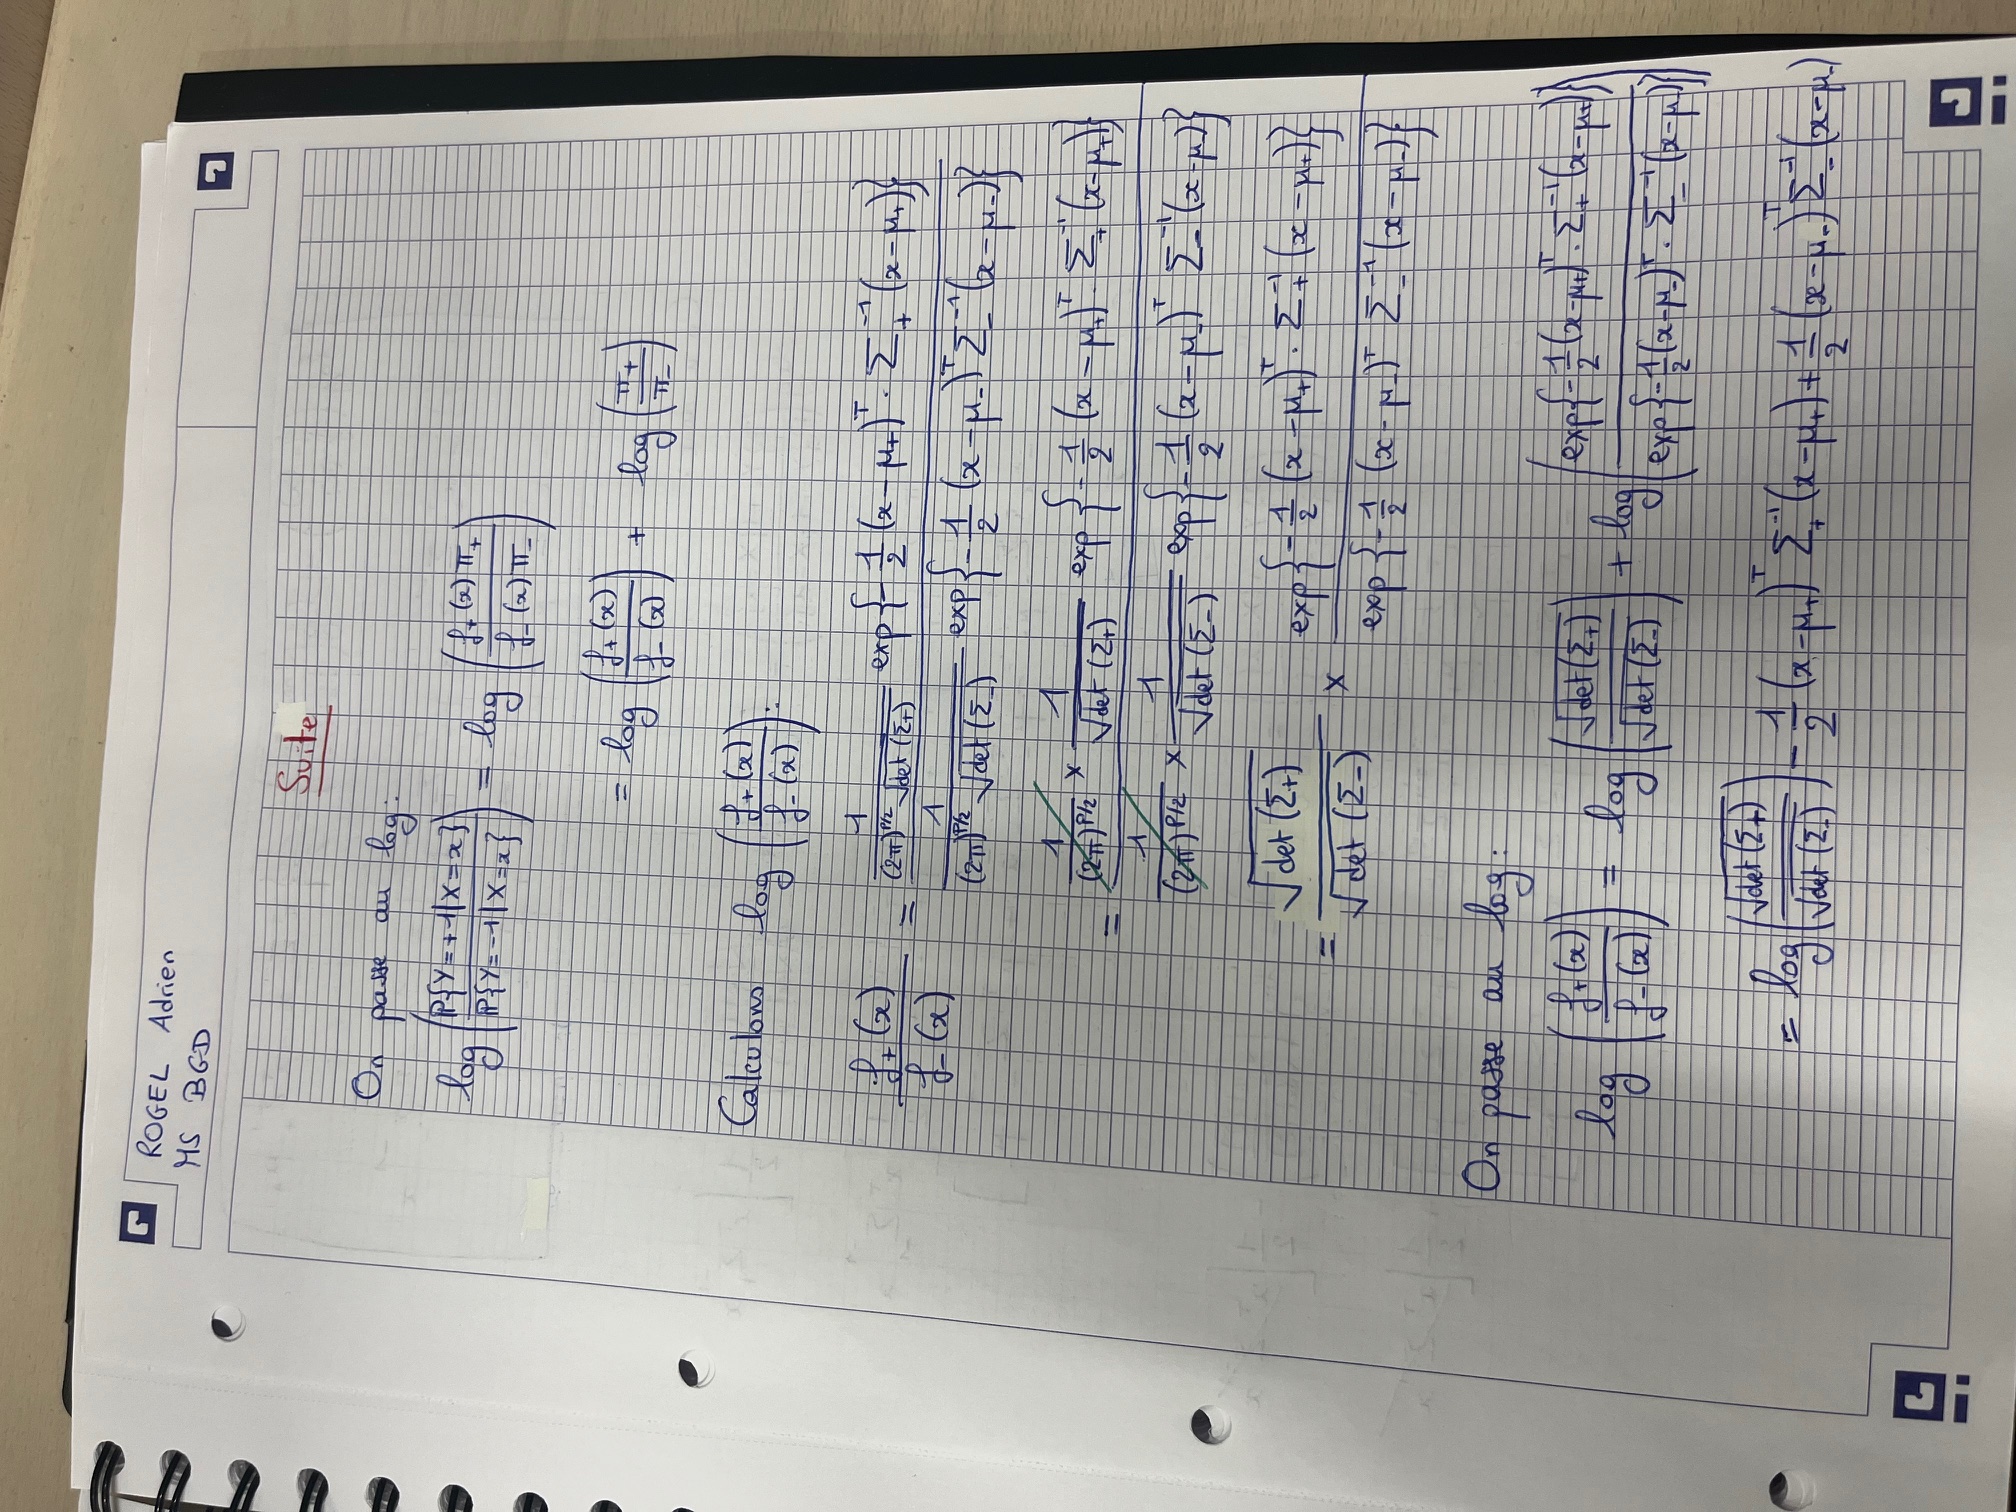 ROGEL Adrien
MS BGD
Suite
On passe au log:
log (P{Y=+1|X=x} / P{Y=-1|X=x}) = log (f₊(x) π₊ / f₋(x) π₋)
= log (f₊(x) / f₋(x)) + log (π₊ / π₋)
Calculons log (f₊(x) / f₋(x)):
f₊(x) / f₋(x) = [1 / ((2π)^{P/2} √det(Σ₊)) exp{-1/2 (x-μ₊)ᵀ · Σ₊⁻¹ (x-μ₊)}] / [1 / ((2π)^{P/2} √det(Σ₋)) exp{-1/2 (x-μ₋)ᵀ Σ₋⁻¹ (x-μ₋)}]
= [1/(2π)^{P/2} × 1/√det(Σ₊) exp{-1/2 (x-μ₊)ᵀ · Σ₊⁻¹ (x-μ₊)}] / [1/(2π)^{P/2} × 1/√det(Σ₋) exp{-1/2 (x-μ₋)ᵀ Σ₋⁻¹ (x-μ₋)}]
= √det(Σ₊) / √det(Σ₋) × exp{-1/2 (x-μ₊)ᵀ · Σ₊⁻¹ (x-μ₊)} / exp{-1/2 (x-μ₋)ᵀ Σ₋⁻¹ (x-μ₋)}
On passe au log:
log (f₊(x) / f₋(x)) = log (√det(Σ₊) / √det(Σ₋)) + log (exp{-1/2 (x-μ₊)ᵀ · Σ₊⁻¹ (x-μ₊)} / exp{-1/2 (x-μ₋)ᵀ · Σ₋⁻¹ (x-μ₋)})
= log (√det(Σ₊) / √det(Σ₋)) - 1/2 (x-μ₊)ᵀ Σ₊⁻¹ (x-μ₊) + 1/2 (x-μ₋)ᵀ Σ₋⁻¹ (x-μ₋)